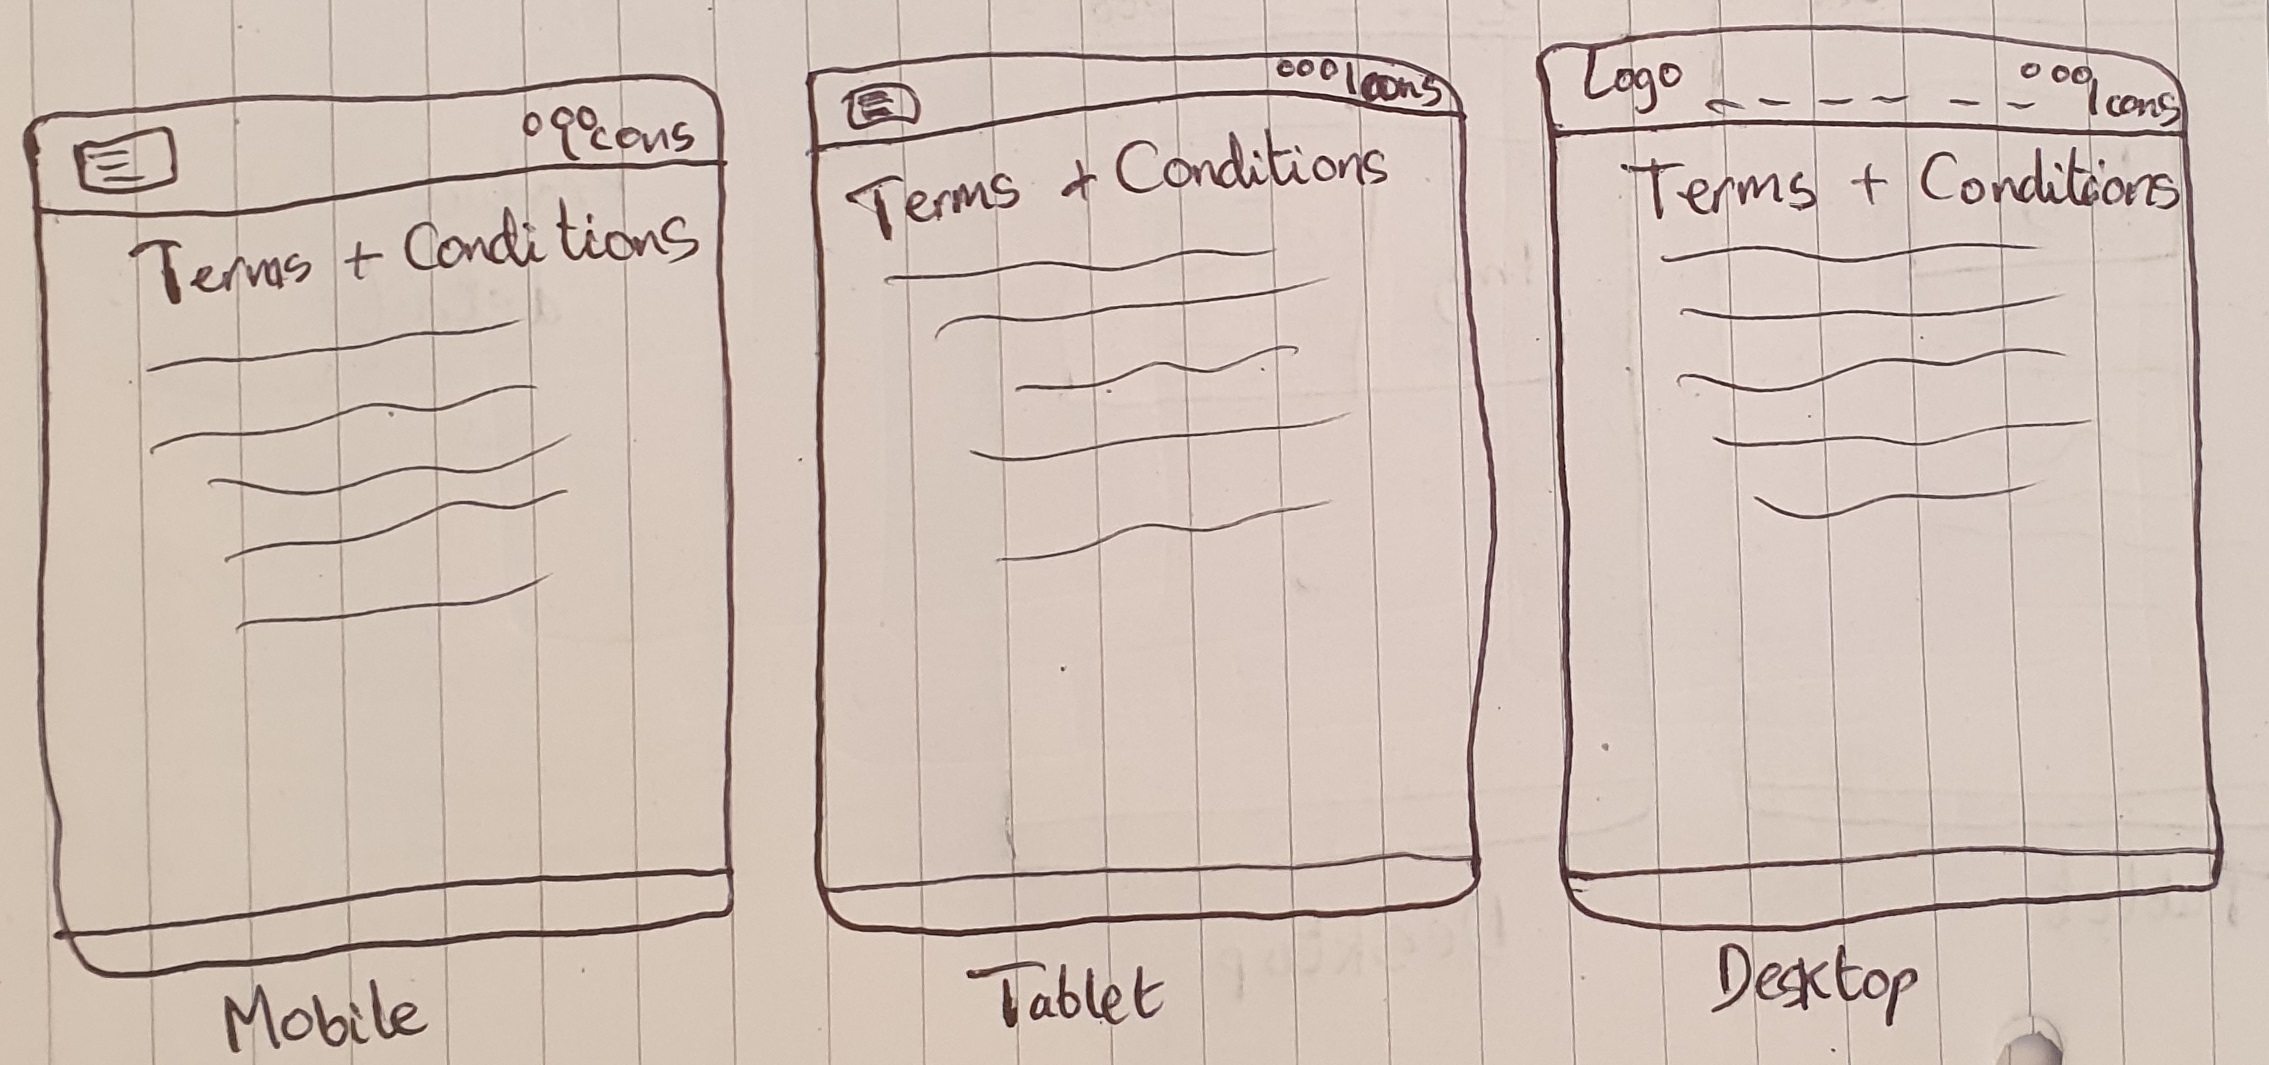 Icons
Terms + Conditions
Mobile
Icons
Terms + Conditions
Tablet
Logo Icons
Terms + Conditions
Desktop